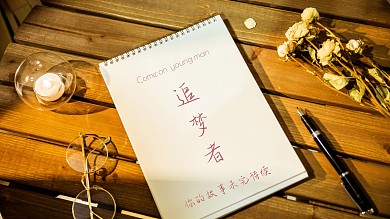 Come on young man
追
梦
者
你的故事未完待续